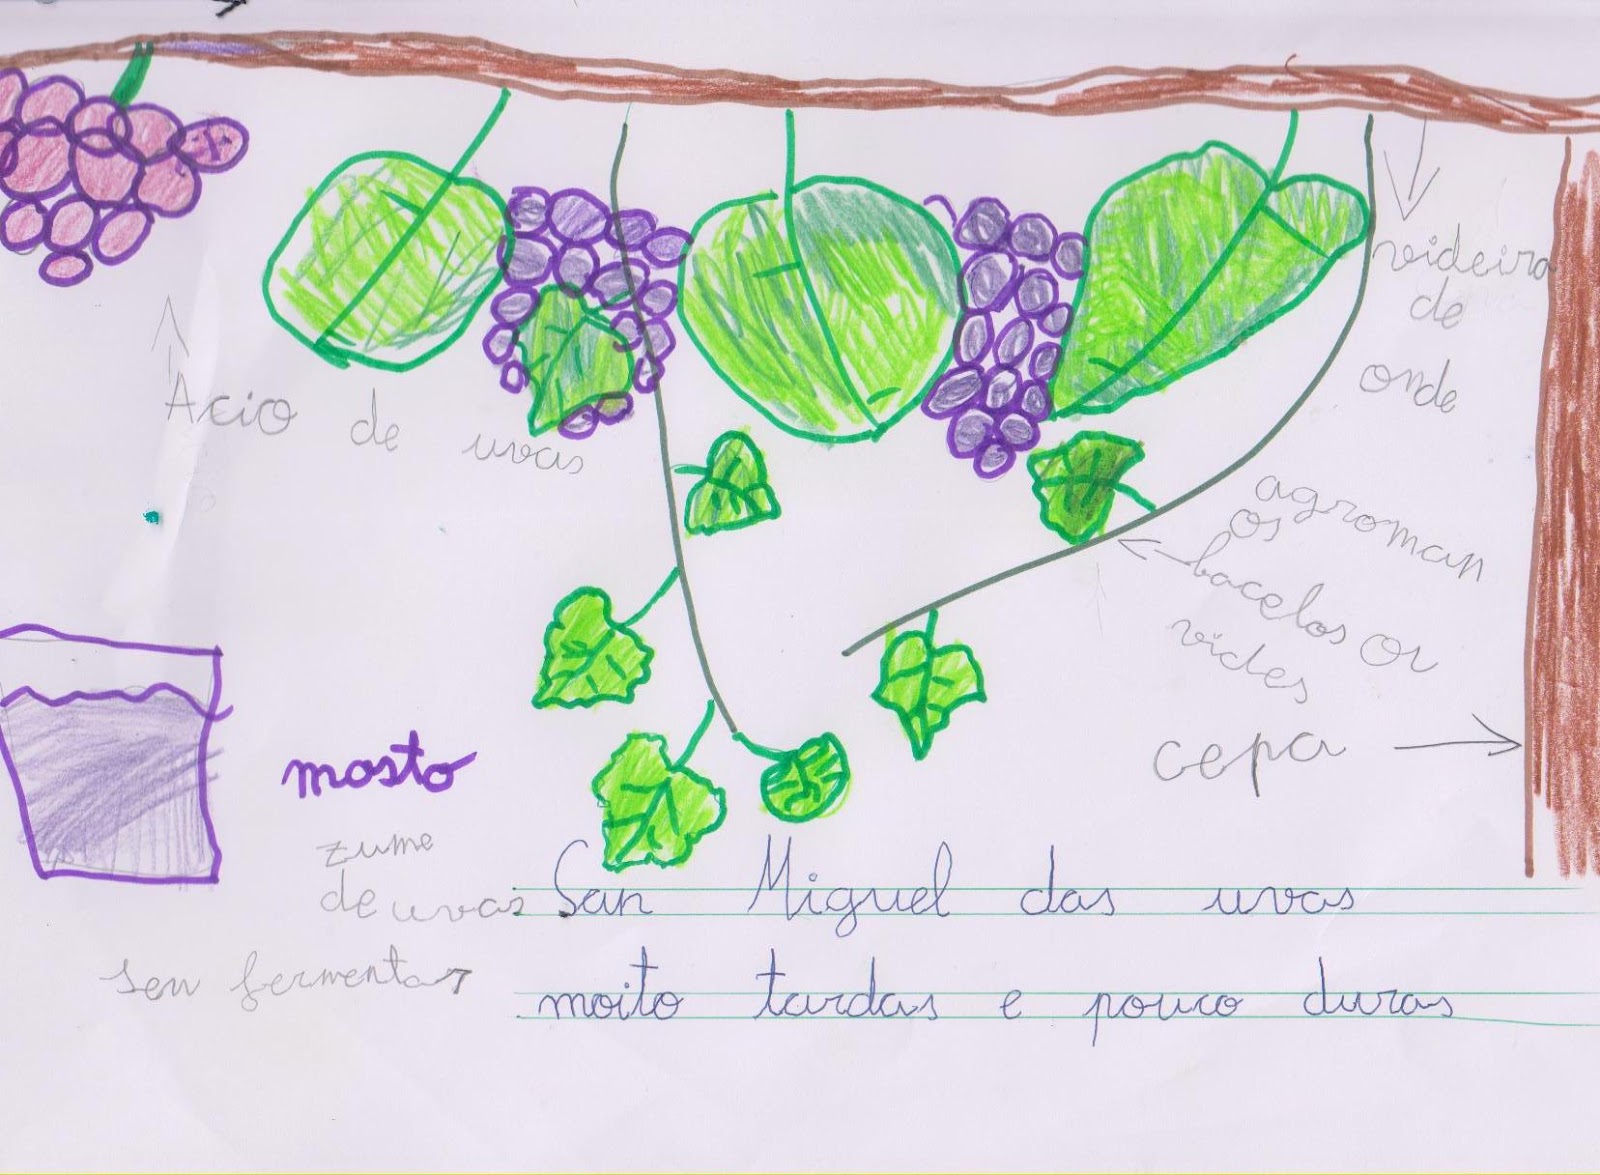 Acio de uvas
videira
de
onde
agroman
os
bacelos or
vides
cepa
mosto
zume
de uvas
sen fermentar
San Miguel das uvas
moito tardas e pouco duras